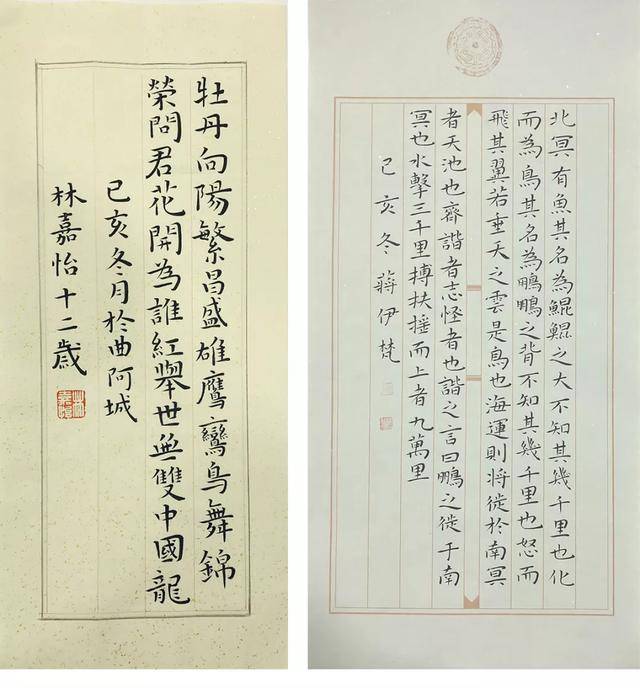 牡丹向陽繁昌盛雄鷹鸞鳥舞錦
榮問君花開為誰紅舉世無雙中國龍
己亥冬月於曲阿城
林嘉怡十二歲
北冥有魚其名為鯤鯤之大不知其幾千里也化
而為鳥其名為鵬鵬之背不知其幾千里也怒而
飛其翼若垂天之雲是鳥也海運則將徙於南冥
者天池也齊諧者志怪者也諧之言曰鵬之徙于南
冥也水擊三千里搏扶摇而上者九萬里
己亥冬蔣伊梵